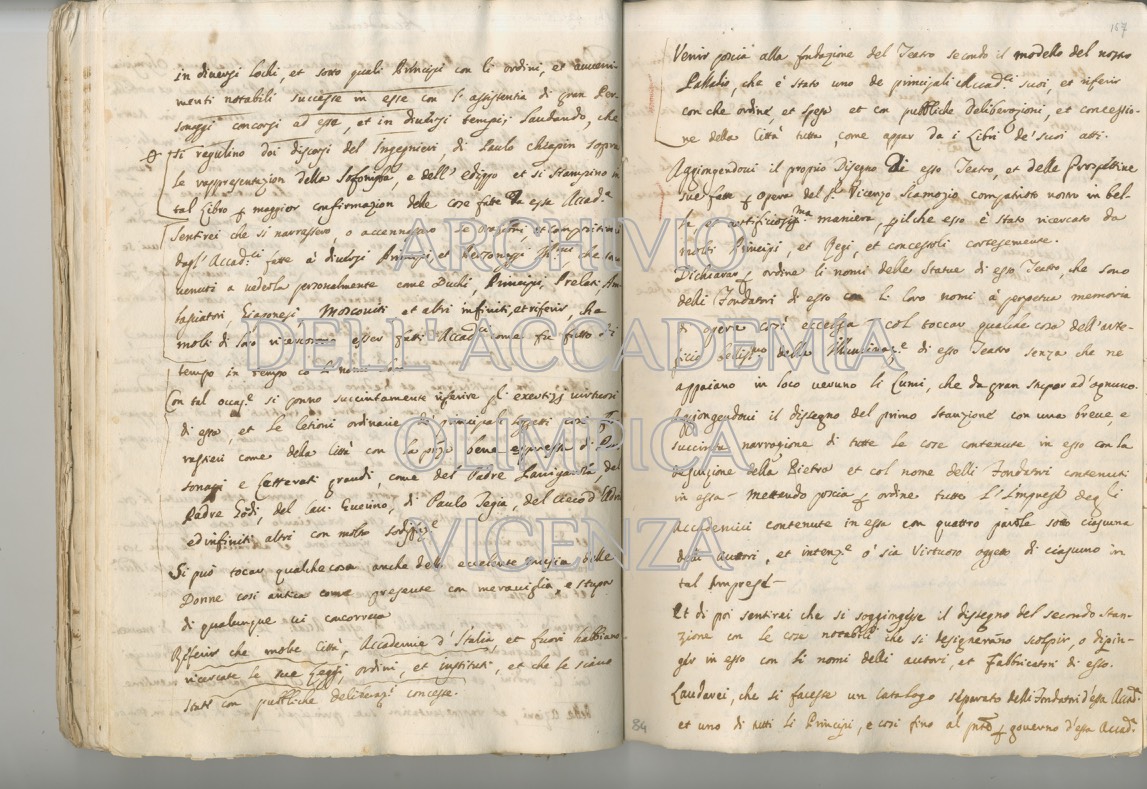 in diuersi lochi, et sotto quali Principi con li ordini, et auueni-
menti notabili successe in esse con l'assistentia di gran Per-
sonaggi concorsi ad esse, et in diuersi tempi; Laudando, che
si regulino doi discorsi del Ingegnieri, di Paulo chiapin sopra
le rappresentazion della Sofonisba, e dell'Edippo et si stampino in
tal libro p maggior confirmazion delle cose fatte da essa Accad.a
Sentirei che si narrassero, o accennassero le orazioni, et compositioni
dagl'Accad.ci fatte à diuersi Principi, et Personaggi che son
venuti a vederla personalmente come Duchi, Principi, Prelati Am-
basiatori Giaponesi Moscouiti et altri infiniti, et riferir, che
molti di loro esser fatti Accad.ci come fu fatto di
tempo in tempo co
Con tal occas.e si ponno succintamente riferire gl'exercizij virtuosi
di essa, et le letioni ordinarie de principali soggetti cosi
rastieri come della Città con la bona espressa di Per-
sonaggi e letterati grandi, come del Padre del
Padre Godi, del Cau. Guarino, di Paulo del
ed infiniti altri con molta
Si può toccar qualche cosa anche dell'eccelente musica delle
Donne cosi antica come presente con merauiglia, e stupor
di qualunque ui concorreua
Riferir che molte Città, Accademie d'Italia, et fuori habbiano
ricercate le sue leggi, ordini, et instituti, et che le siano
state con pubbliche deliberaz.i concesse.
84
167
Venir poscia alla fondazione del Teatro secondo il modello del nostro
Palladio, che è stato uno de principali Accad.ci suoi, et riferir
con che ordine, et spesa et con pubbliche deliberazioni, et concessio-
ne della Città tutta, come appar da i Libri de' suoi atti.
Aggiongendoui il proprio Disegno di esso Teatro, et delle Prospettiue
sue fatte p opera del S.r Vicenzo Scamozio compatriota nostro in bel-
la et artificiosiss.ma maniera, p il che esso è stato ricercato da
molti Principi, et Regi, et concessoli cortesemente.
Dichiarar p ordine li nomi delle Statue di esso Teatro, che sono
delli Fondatori di esso li loro nomi à perpetua memoria
di opera cosi eccelsa col toccar qualche cosa dell'arte-
ficio della Illuminaz.e di esso Teatro senza che ne
appaiano in loco ueruno li lumi, che da gran stupor ad'ognuno.
Aggiongendoui il disegno del primo stanzione con una breue, e
succinta narrazione di tutte le cose contenute in esso con la
descrizione della Pietra et col nome delli Fondatori contenuti
in essa - mettendo poscia p ordine tutte l'Imprese degli
Accademici contenute in essa con quattro parole sotto ciascuna
delli Auttori, et intenz.e ò sia Virtuoso ogetto di ciascuno in
tal Impresa -
Et di poi sentirei che si soggiongesse il disegno del secondo stan-
zione con le cose notabili che si desegneranno scolpir, o dipin-
ger in esso con li nomi delli autori, et fabbricatori di esso.
Lauderei, che si facesse un Catalogo separato delli Fondatori d'essa Accad.a
et uno di tutti li Principi, e cosi fino al p gouerno d'essa Accad.a
ARCHIVIO
DELL'ACCADEMIA
OLIMPICA
VICENZA